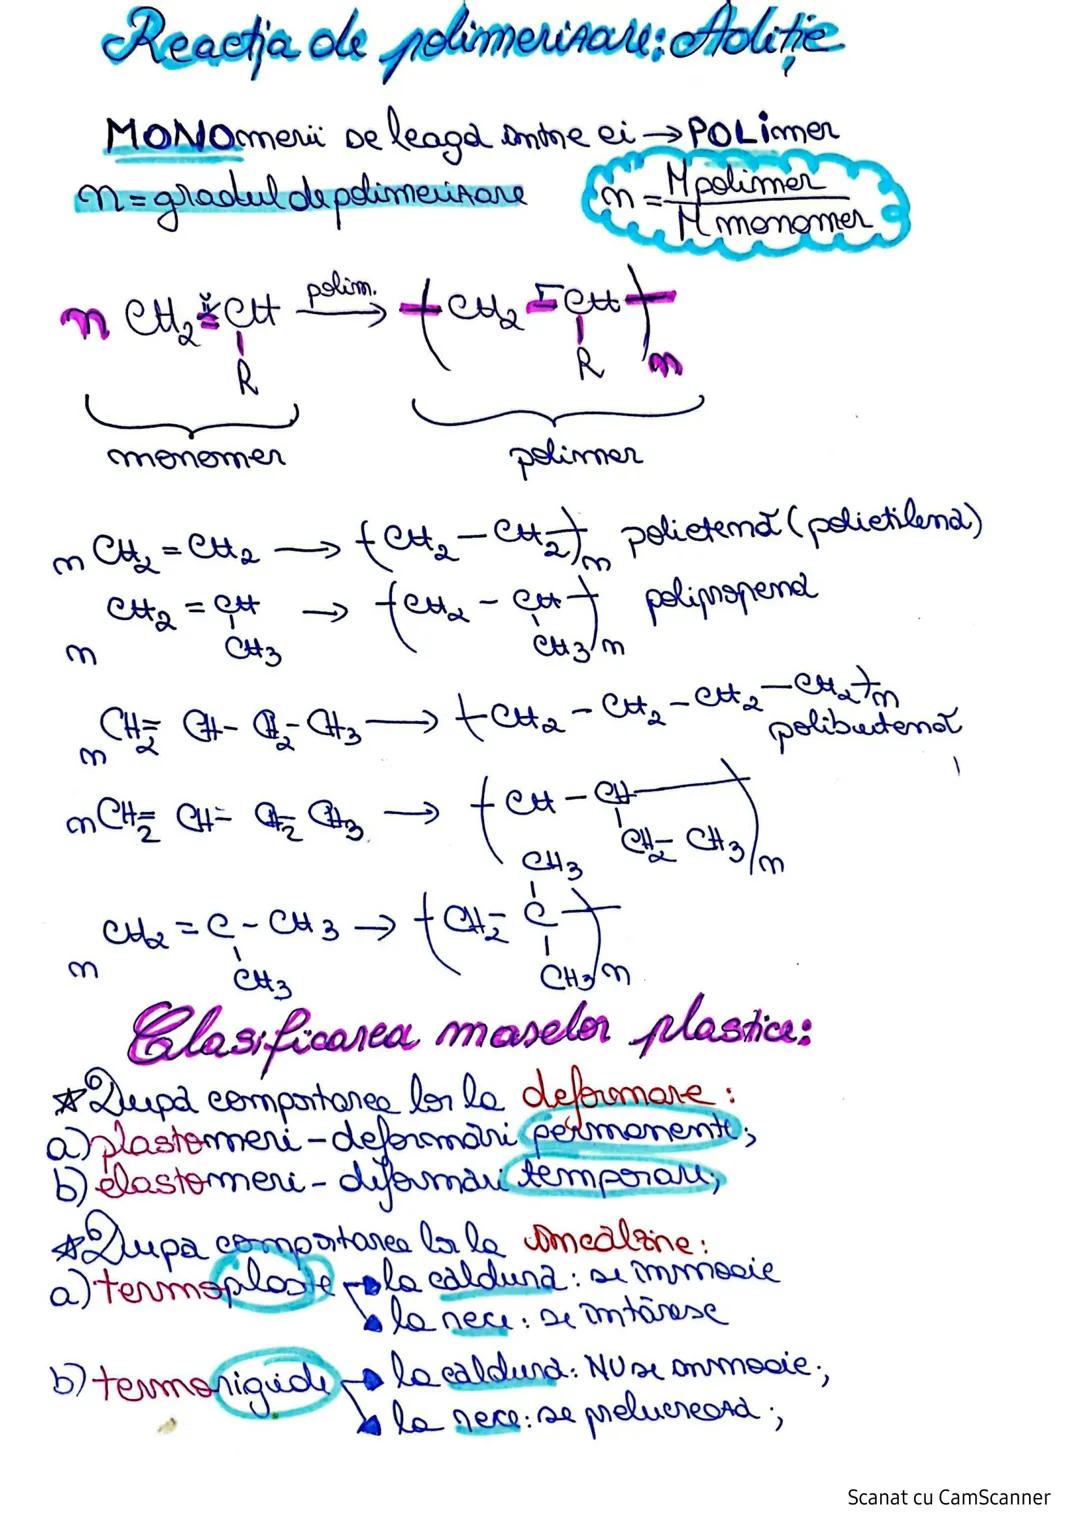 Reacția de polimerizare: Adiție
MONOmerii se leagă între ei → POLimer
n = gradul de polimerizare
n = Mpolimer / Mmonomer
n CH2 = CH polim. → ( CH2 - CH )n
R R
monomer polimer
n CH2 = CH2 → ( CH2 - CH2 )n polietenă (polietilenă)
n CH2 = CH → ( CH2 - CH )n polipropenă
CH3 CH3
n CH2 = CH - CH2 - CH3 → ( CH2 - CH2 - CH2 - CH2 )n
polibutenă
n CH2 = CH = CH2 CH3 → ( CH - CH )n
CH2 - CH3
CH3
n CH2 = C - CH3 → ( CH2 - C )n
CH3 CH3
Clasificarea maselor plastice:
După comportarea lor la deformare:
a) plastomeri - deformări permanente;
b) elastomeri - diformări temporare;
După comportarea lor la încălzire:
a) termoplaste → la căldură: se înmoaie
→ la rece: se întăresc
b) termorigide → la căldură: NU se înmoaie;
→ la rece: se prelucrează;
Scanat cu CamScanner